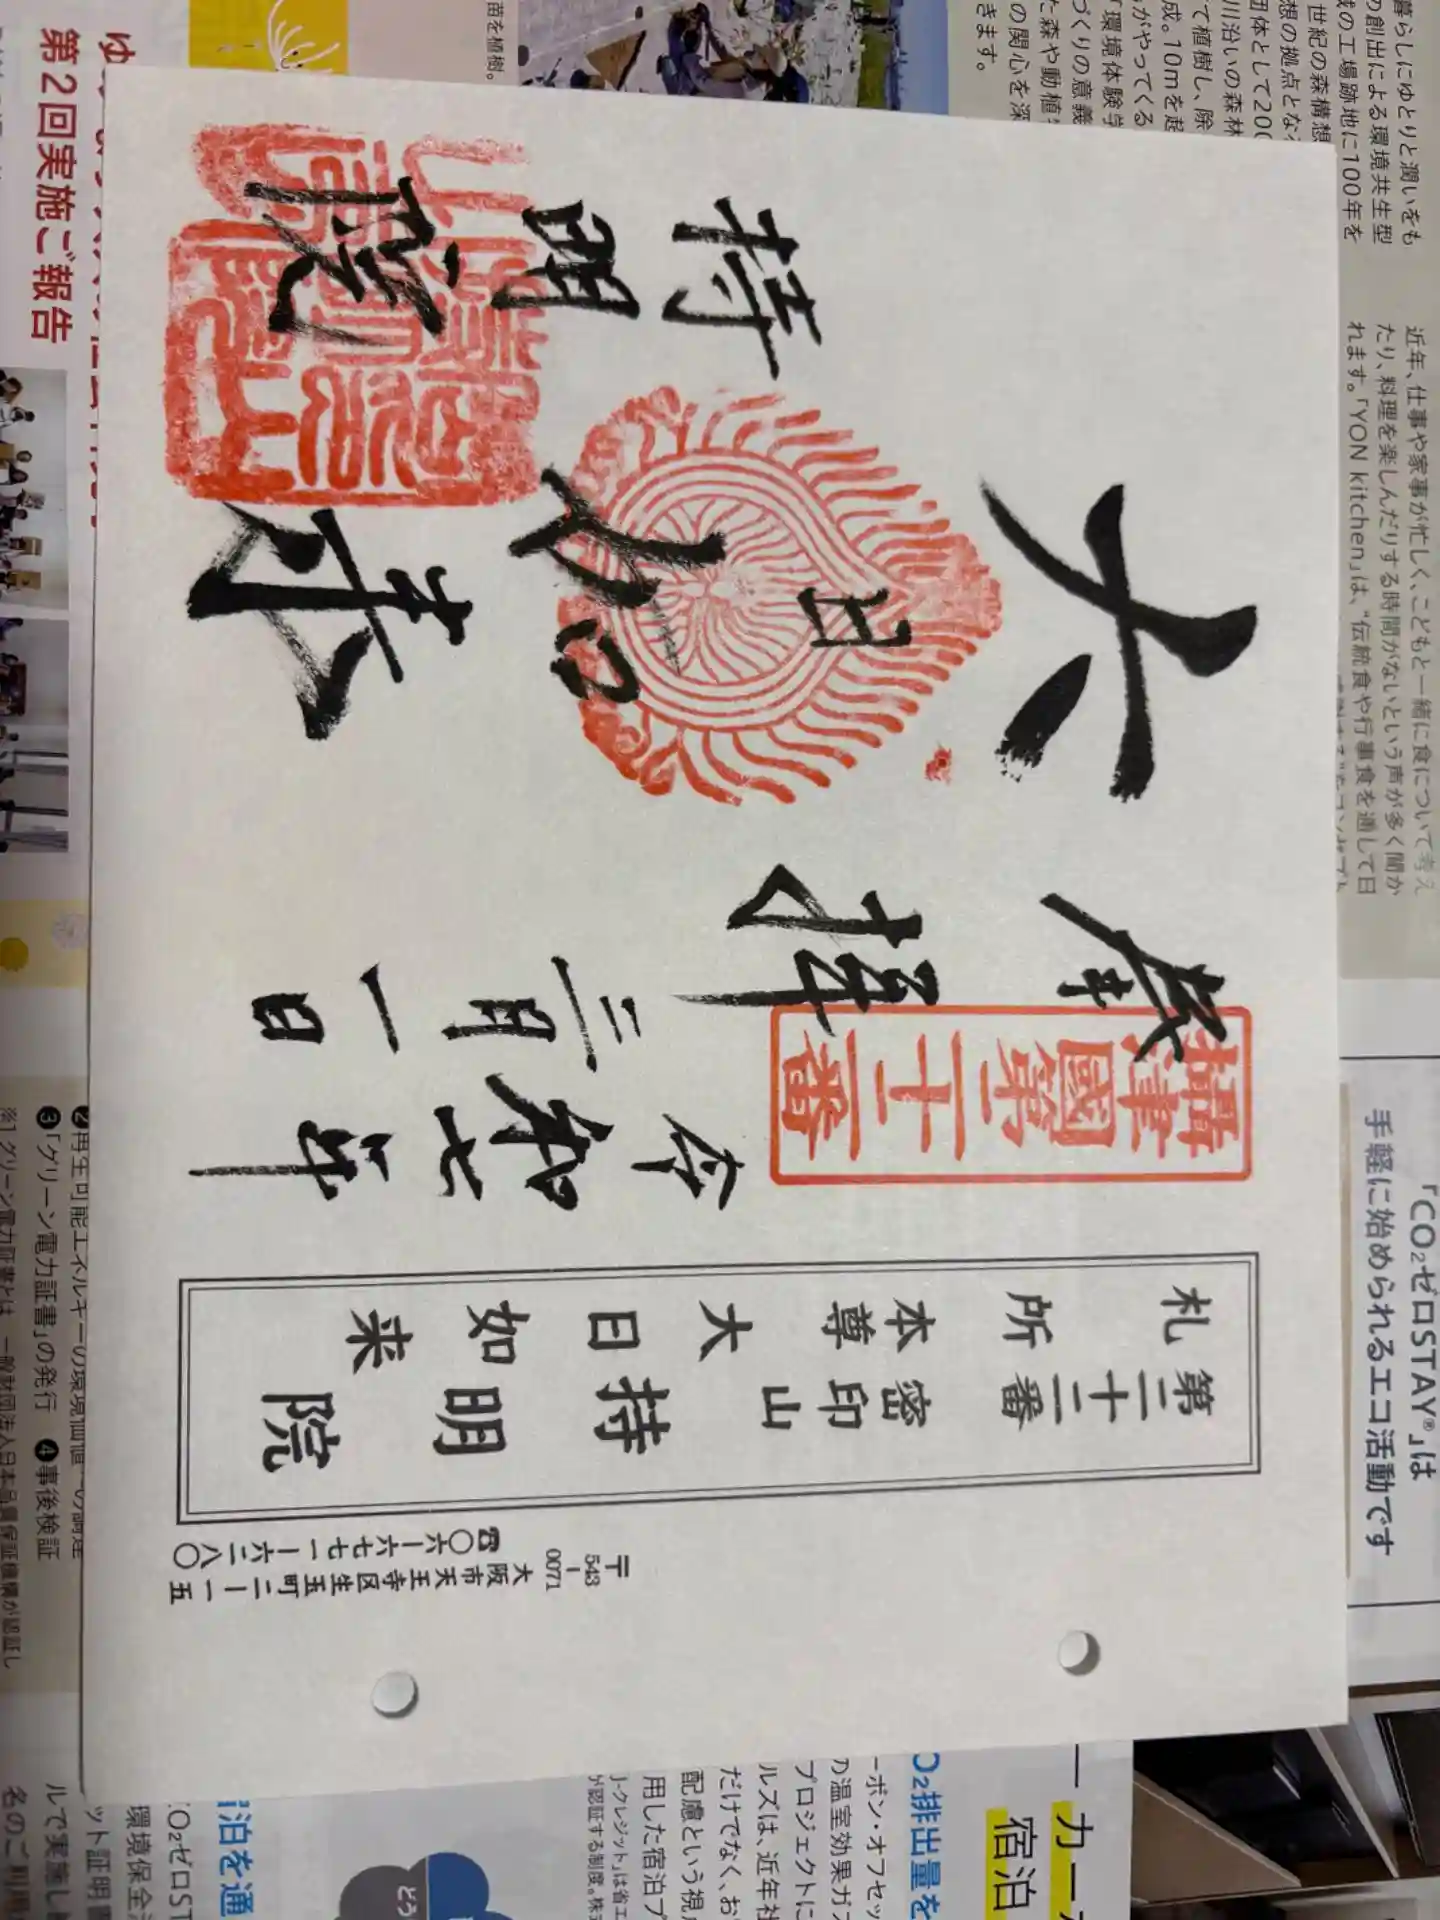 奉拝
令和七年
三月一日
大日如来
持明院
摂津國第二十二番
札所
第二十二番
本尊
大日如来
密印山
持明院
〒543-0071
大阪市天王寺区生玉町二ー一ー五
☎〇六ー六七七一ー六二八〇
第2回実施ご報告
苗を植樹。
暮らしにゆとりと潤いをも
の創出による環境共生型
の工場跡地に100年を
世紀の森構想
想の拠点とな
団体として200
川沿いの森林
て植樹し、除
成。10mを起
がやってくる
「環境体験学
づくりの意義
た森や動植
の関心を深
きます。
近年、仕事や家事が忙しく、こどもと一緒に食について考え
たり、料理を楽しんだりする時間がないという声が多く聞か
れます。「YON kitchen」は、“伝統食や行事食を通して日
「CO₂ゼロSTAY®」は
手軽に始められるエコ活動です
❷再生可能エネルギーの環境価値
❸「グリーン電力証書」の発行 ❹事後検証
※1グリーン電力証書とは 一般財団法人日本品質保証機構が認証し
宿泊
CO₂排出量を
ーボン・オフセッ
の温室効果ガ
プロジェクトに
ルズは、近年社
だけでなく、お
配慮という視
用した宿泊プ
J-クレジット」は省エ
が認証する制度。株
どう
泊を通
CO₂ゼロST
環境保全
ット証明書
ルで実施し
名のご利用